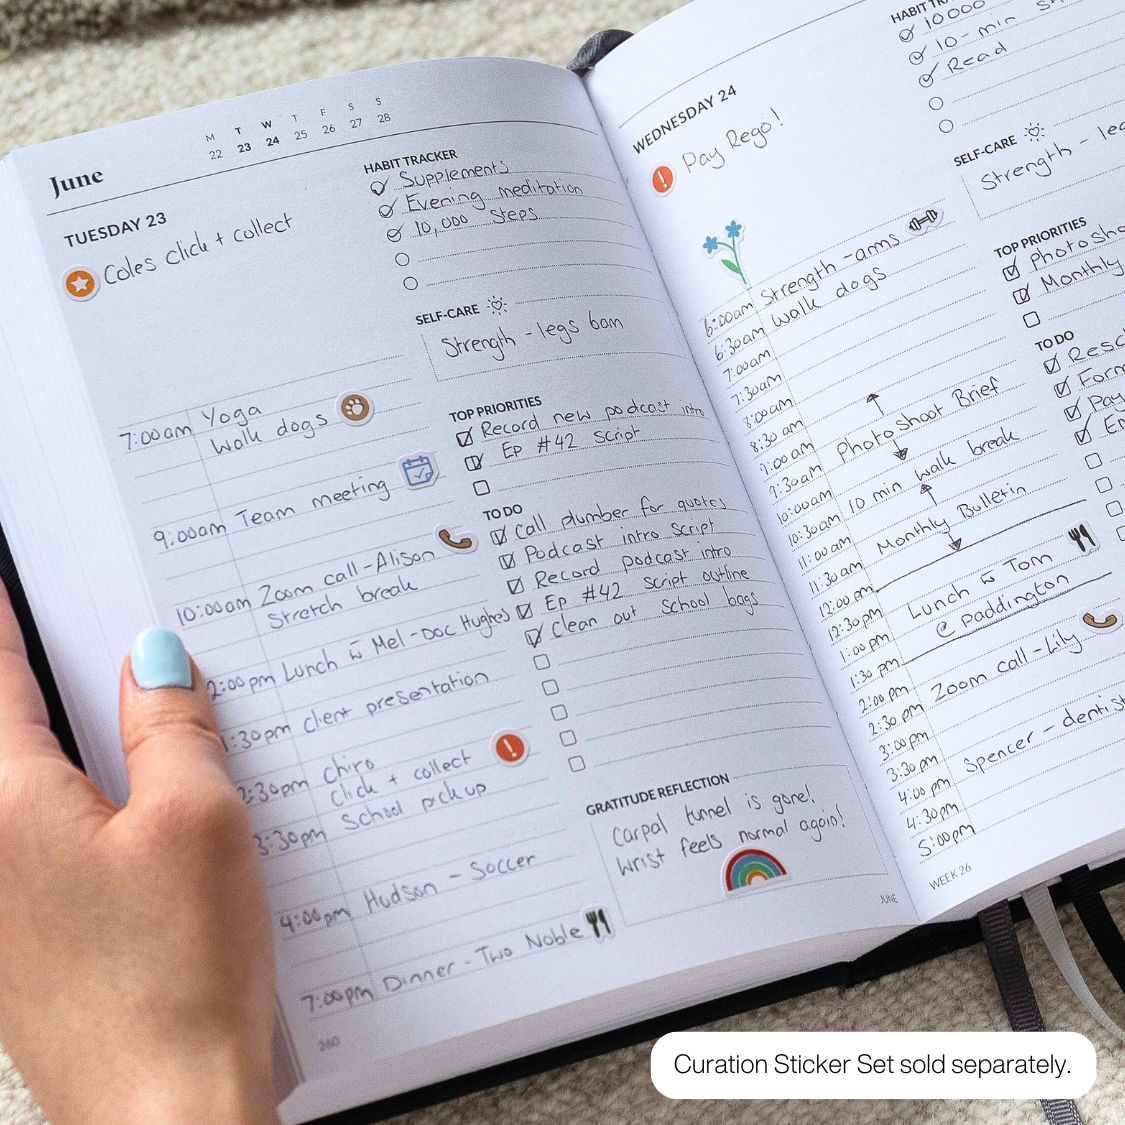 June
M T W T F S S
22 23 24 25 26 27 28
TUESDAY 23
Coles click + collect
HABIT TRACKER
Supplements
Evening meditation
10,000 Steps
SELF-CARE
Strength - legs 6am
7:00am Yoga
Walk dogs
9:00am Team meeting
10:00am Zoom call - Alison
Stretch break
2:00pm Lunch w Mel - Doc Hughes
1:30pm client presentation
2:30pm Chiro
click + collect
3:30pm School pick up
4:00pm Hudson - Soccer
7:00pm Dinner - Two Noble
260
TOP PRIORITIES
Record new podcast intro
Ep #42 Script
TO DO
Call plumber for quotes
Podcast intro script
Record podcast intro
Ep #42 script outline
Clean out school bags
GRATITUDE REFLECTION
Carpal tunnel is gone!
Wrist feels normal again!
JUNE
WEDNESDAY 24
Pay Rego!
HABIT TR
10000
10-min
Read
SELF-CARE
Strength - leg
6:00am Strength - arms
6:30am Walk dogs
7:00am
7:30am
8:00am
8:30am
9:00am Photoshoot Brief
9:30am
10:00am 10 min walk break
10:30am
11:00am Monthly Bulletin
11:30am
12:00pm
12:30pm Lunch w Tom
1:00pm @ Paddington
1:30pm
2:00pm
2:30pm Zoom call - Lily
3:00pm
3:30pm
4:00pm Spencer - dentist
4:30pm
5:00pm
TOP PRIORITIES
Photosho
Monthly
TO DO
Resc
Form
Pay
Em
WEEK 26
Curation Sticker Set sold separately.